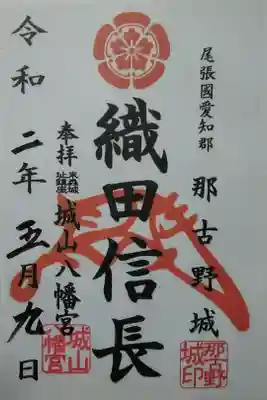 尾張國愛知郡
那古野城
織田信長
奉拝
末森城
址鎮座
城山八幡宮
令和二年五月九日
那古野
城印
城山
八幡宮